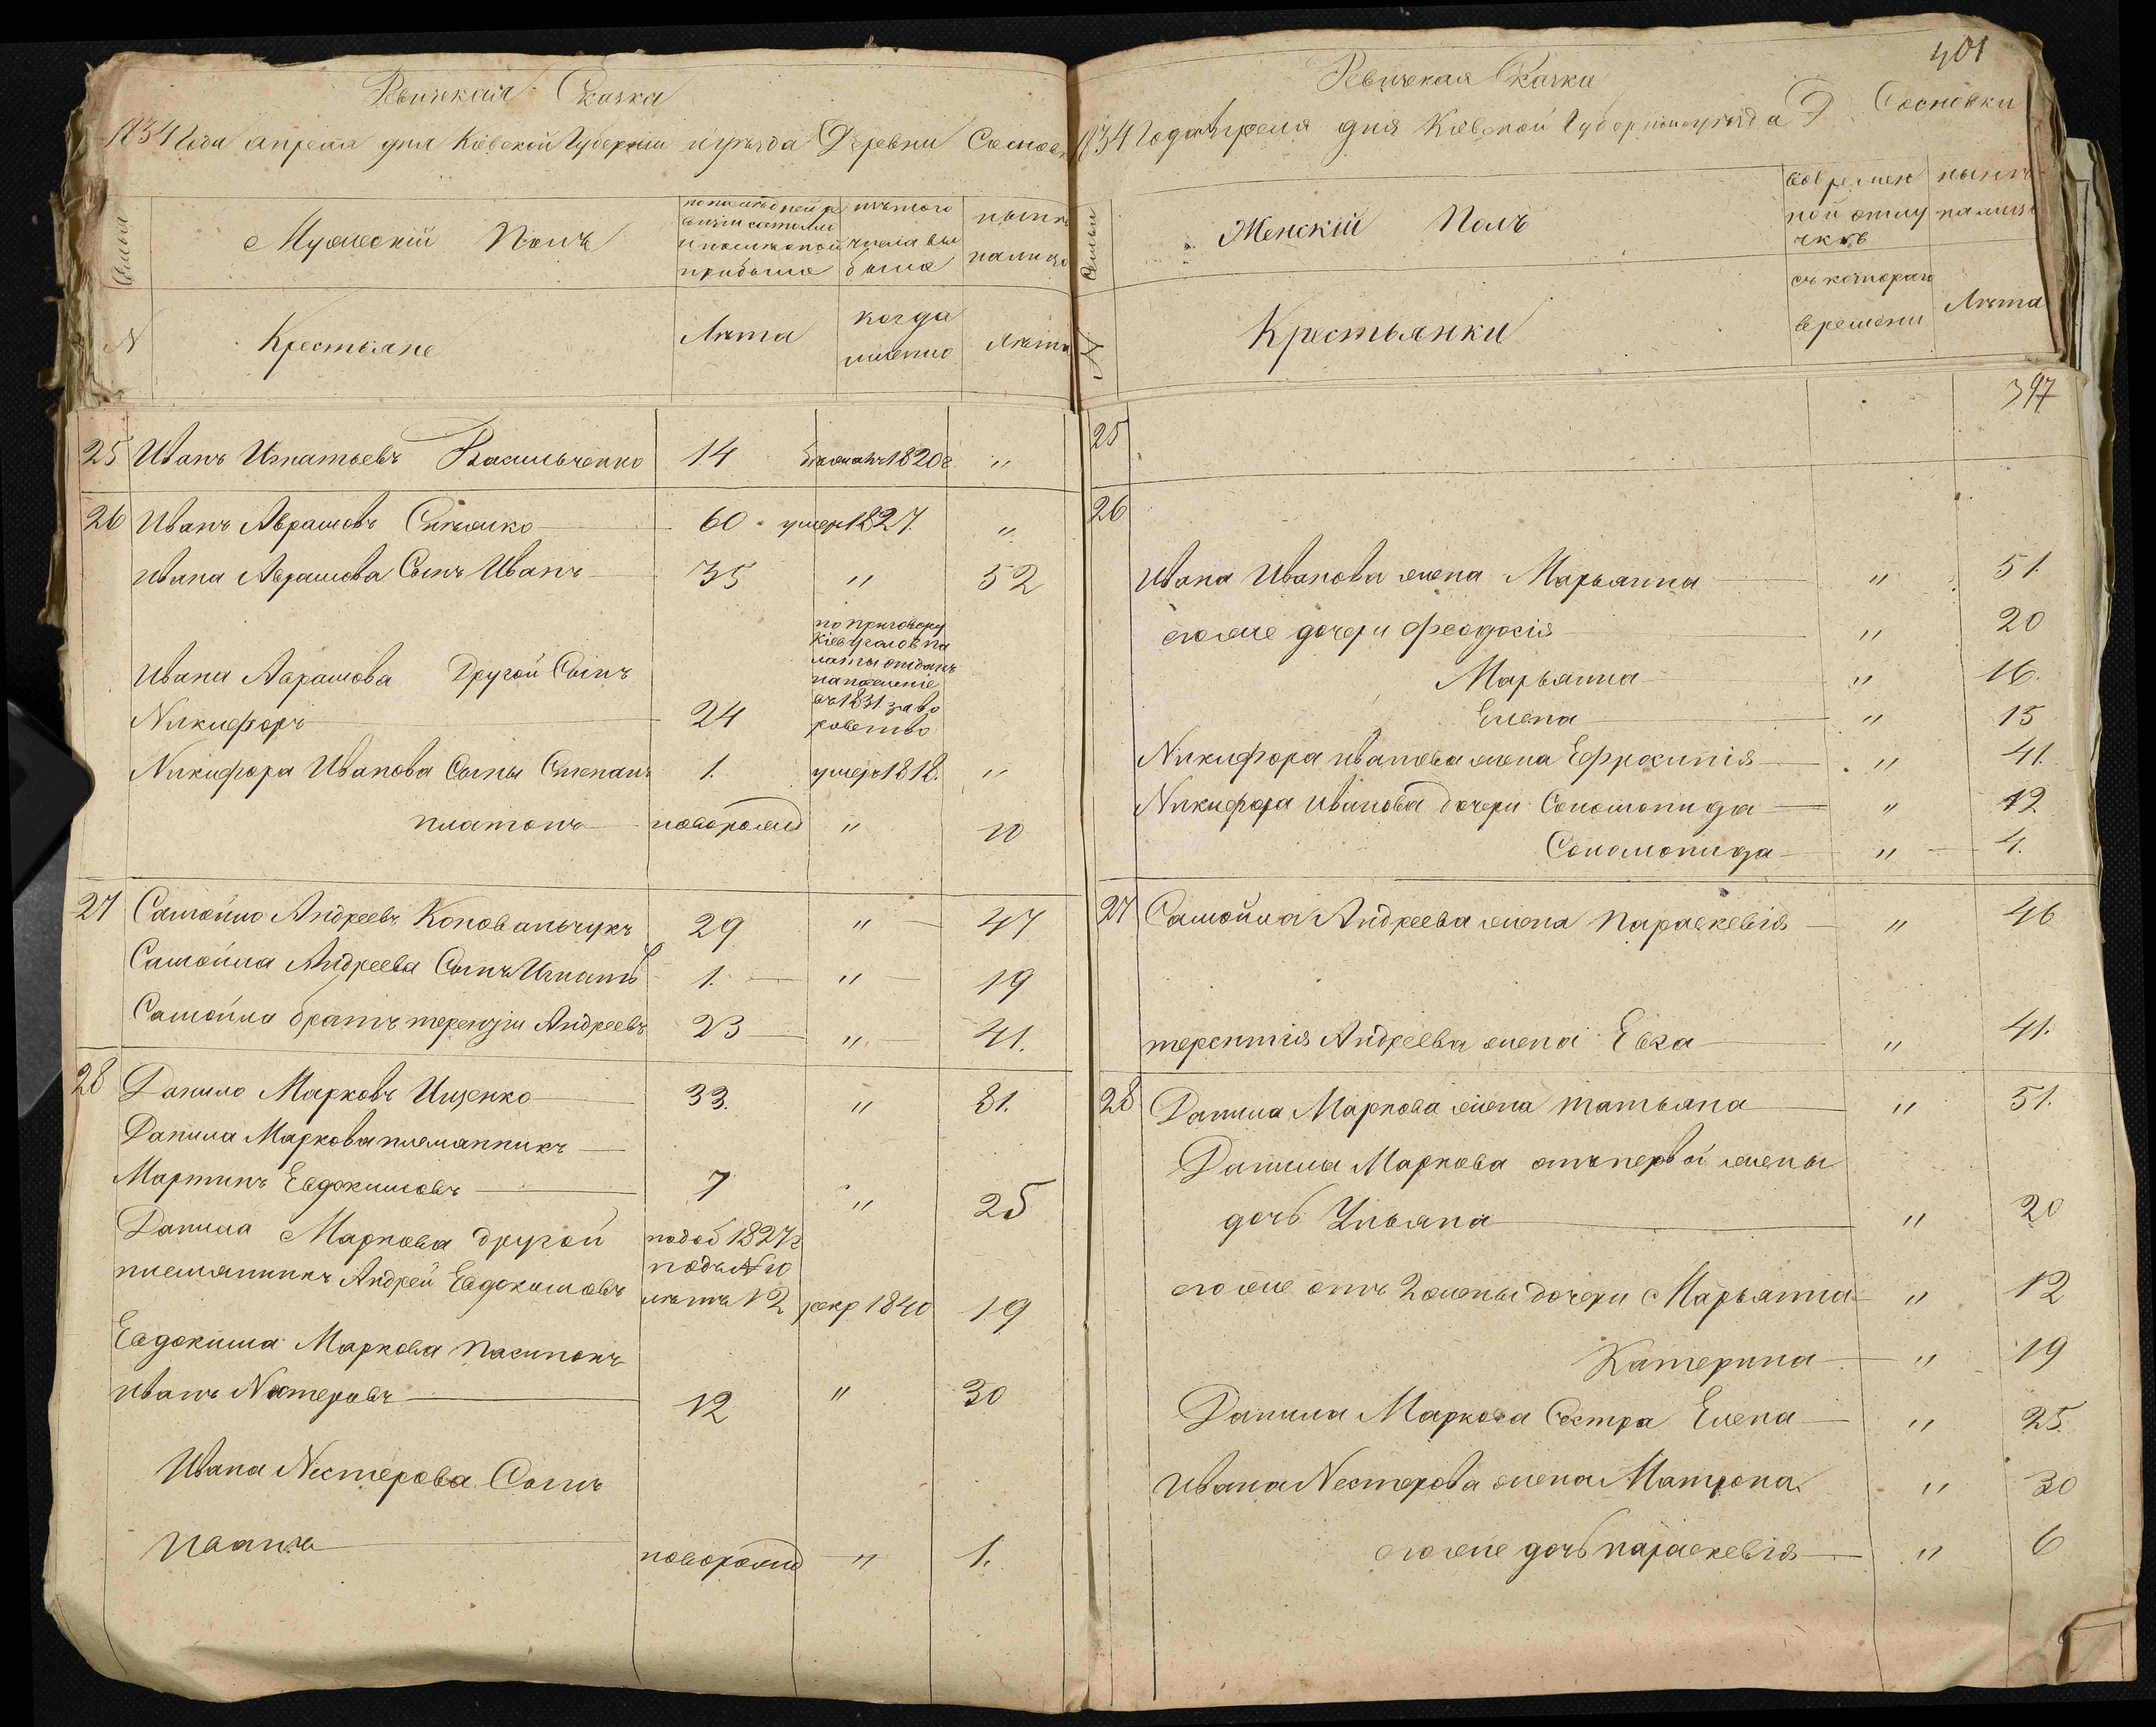 Ревизская Сказка
1834 Года апреля дня Киевской Губернии и уезда Деревни Сосновк
Семьи
Мужеский Полъ
по последней ревизии состояло и после оной прибыло
изъ того числа выбыло
ныне налицо
N
Крестьяне
Лета
когда именно
Лета
25 Иванъ Игнатьевъ Васильченко 14 1820г. "
26 Иванъ Аврамовъ 60 умер 1827. "
Ивана Аврамова Сынъ Иванъ 35 " 52
по приговору
Киев. уголов. па
латы отданъ
на поселение
въ 1831. за во
ровство
Ивана Аврамова Другой Сынъ
Никифоръ 24
Никифора Иванова Сыны Степанъ 1. умер 1818. "
платонъ новорожд " 10
27 Самойло Андреевъ Коновальчукъ 29 " 47
Самойла Андреева Сынъ Игнатъ 1. " 19
Самойла братъ терентий Андреевъ 23 " 41.
28 Данило Марковъ Ищенко 33. " 51.
Данила Маркова племянникъ
Мартинъ Евдокимовъ 7 " 25
Данила Маркова другой подоб 1827г
племянникъ Андрей Евдокимовъ подъ N 10
летъ 12 рекр 1840 19
Евдокима Маркова пасинокъ
иванъ Нестеровъ 12 " 30
Ивана Нестерова Сынъ
Иванъ новорожд " 1.
401
Ревизская Сказка
1834 Года апреля дня Киевской Губернии и уезда Д. Сосновки
Семьи
Женский Полъ
во временной отлучке
ныне налицо
N
Крестьянки
съ котораго времени
Лета
397
25
26
Ивана Иванова жена Марьянна " 51.
его же дочери Феодосия " 20
Марьянна " 16.
Елена " 15
Никифора иванова жена Ефросиния " 41.
Никифора иванова дочери Соломонида " 12
Соломонида " 4.
27 Самойла Андреева жена Параскевия " 46
терентия Андреева жена Евга " 41.
28 Данила Маркова жена татьяна " 51.
Данила Маркова отъ первой жены
дочь Ульяна " 20
его же отъ 2 жены дочери Марьянна " 12
Катерина " 19
Данила Маркова Сестра Елена " 25.
Ивана Нестерова жена Матрона " 30
его же дочь параскевия " 6